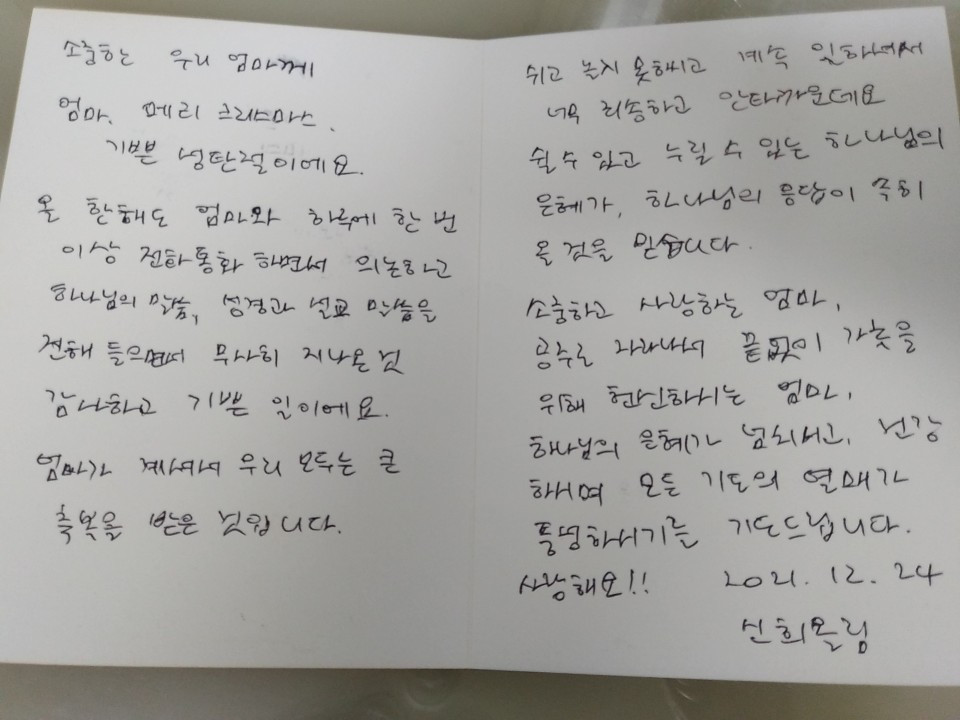 소중하는 우리 엄마께
엄마, 메리 크리스마스.
기쁜 성탄절이에요.
올 한해도 엄마와 하루에 한 번
이상 전화통화 하면서 의논하고
하나님의 말씀, 성경과 설교 말씀을
전해 들으면서 무사히 지나온 것
감사하고 기쁜 일이에요.
엄마가 계셔서 우리 모두는 큰
축복을 받은 것입니다.
쉬고 놀지 못하시고 계속 일하셔서
너무 죄송하고 안타까운데요
쉴 수 있고 누릴 수 있는 하나님의
은혜가, 하나님의 응답이 속히
올 것을 믿습니다.
소중하고 사랑하는 엄마,
공주로 자라나서 끝없이 가족을
위해 헌신하시는 엄마,
하나님의 은혜가 넘치시고, 건강
하시며 모든 기도의 열매가
풍성하시기를 기도드립니다.
사랑해요!! 2021. 12. 24
신희올림